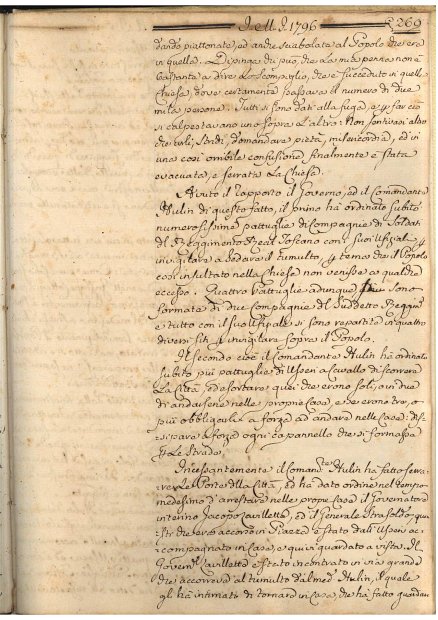 I. M. I. 1796 269
dando piattonate, ed anche sciabolata al Popolo che era
in quella. Dipiù, la mia penna non è
bastante a dire lo scompiglio, che è succeduto in quella
Chiesa, dove certamente passava il numero di due
mila persone. Tutti si sono dati alla fuga, e far ciò
si calpestavano uno sopra l'altro: Non sentivasi altro
che urli, stridi, domandare pietà, misericordia, ed in
una così orribile confusione finalmente è stata
evacuata, e serrata la Chiesa.
Avuto il rapporto il Governo, ed il Comandante
Hulin di questo fatto, il primo ha ordinato subito
numerosissime pattuglie di Compagnie di Soldati
del Reggimento Real Toscano con suoi Ufizali
invigilare a sedare il tumulto, temo che il Popolo
così insultato nella Chiesa non venisse a qualche
eccesso. Quattro Pattuglie adunque sono
formate di due compagnie del suddetto Reggim.
e tutto con il suo Ufizale si sono repartite in quattro
diversi siti invigilare sopra il Popolo.
Il secondo cioè il Comandante Hulin ha ordinato
subito più pattuglie di Usseri a Cavallo di scorrere
la Città, ed esortare quei che erono soli, o in due
di andarsene nelle proprie Case, e se erono tre, o
più obbligarli a forza ad andare nelle Case: dis-
sipare a forza ogni capannello che si formassa
le strade.
Incessantemente il Comand.te Hulin ha fatto serra-
re le Porte della Città, ed ha dato ordine nel tempo
medesimo d'arrestare nelle proprie Case il Governatore
interino Jacopo Lavilletta, ed il Generale Strasoldo: que-
sti che era accorso in Piazza è stato dali Usseri ac-
compagnato in Casa, e quivi guardato a vista. Il
Govern. Lavilletta è stato incontrato in via grande
che accorreva al tumulto dal med. Hulin, il quale
gli ha intimato di tornare in Casa, che ha fatto guardare